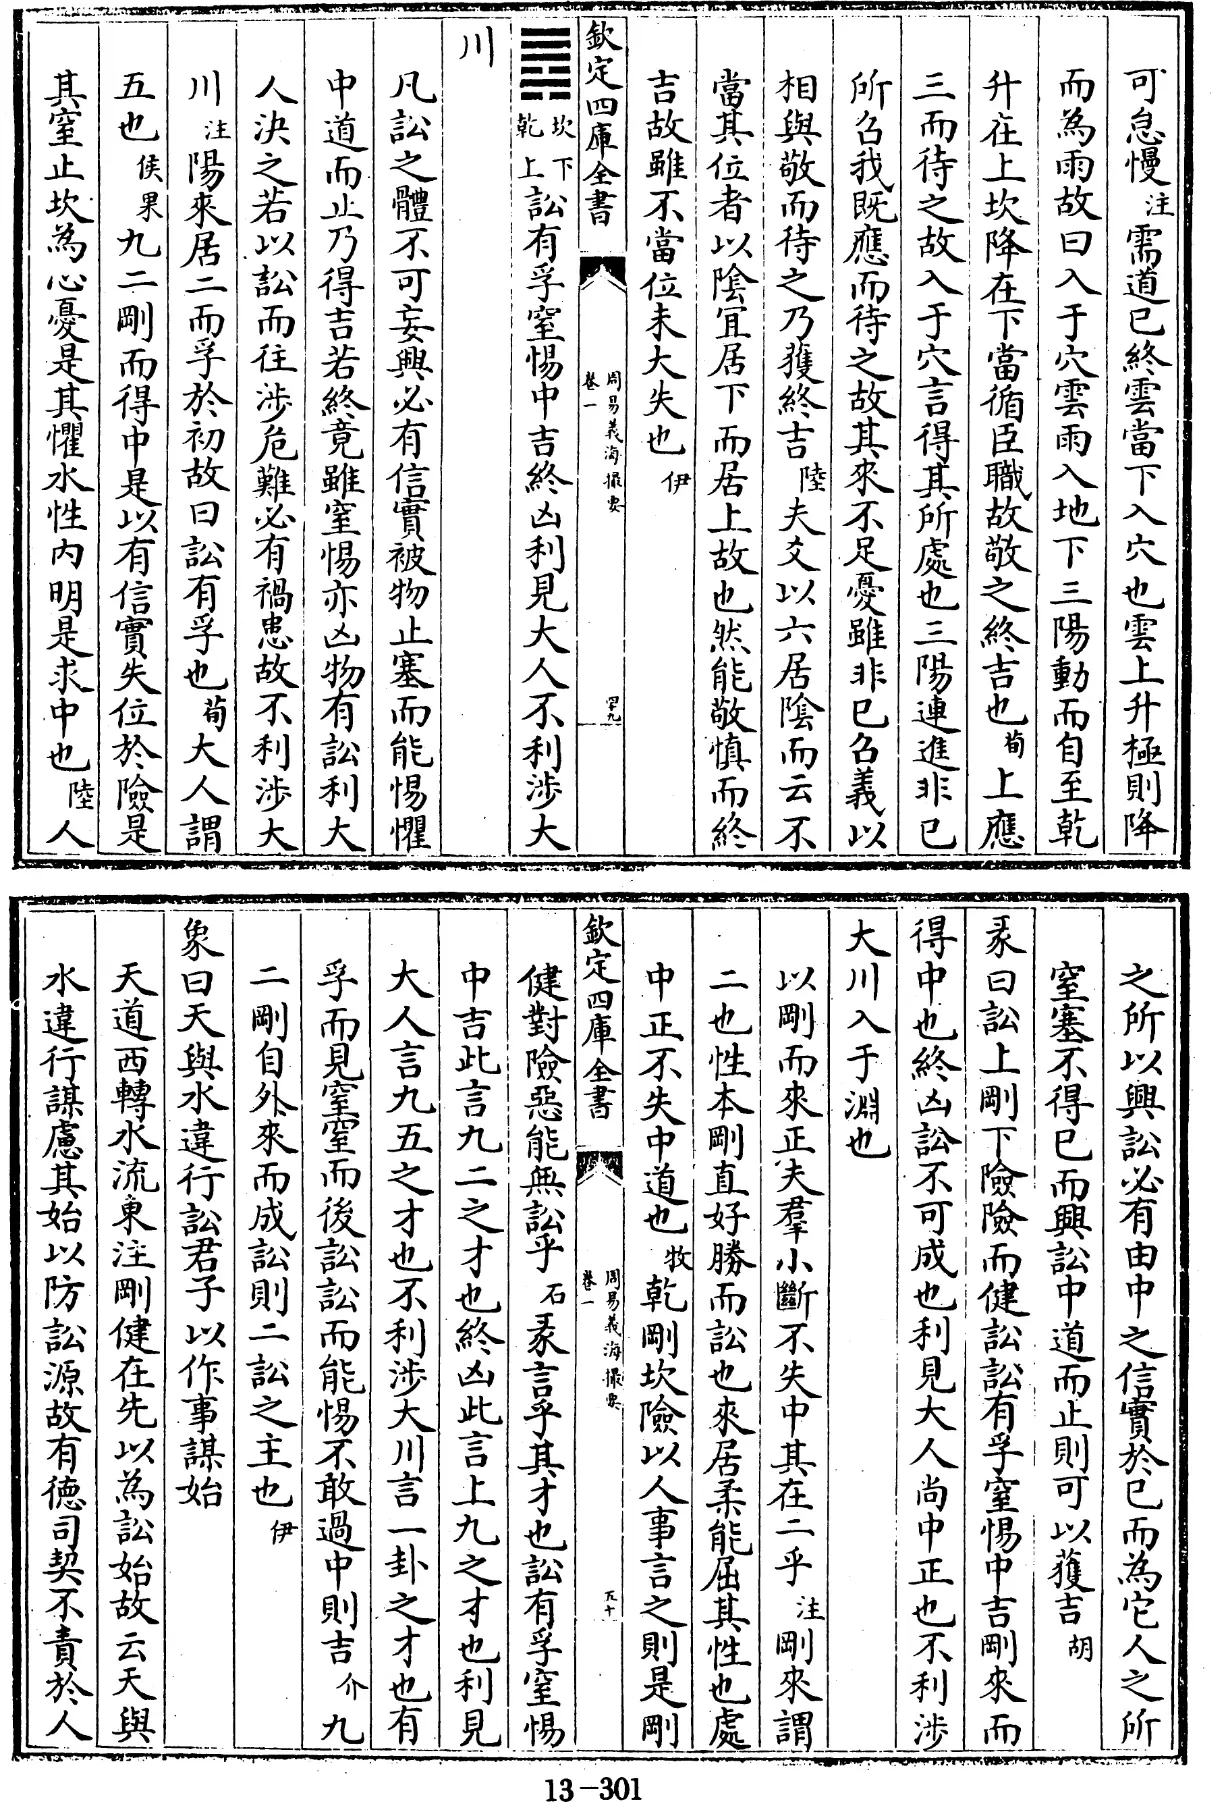 可怠慢注需道已終雲當下入穴也雲上升極則降
而為雨故曰入于穴雲雨入地下三陽動而自至乾
升在上坎降在下當循臣職故敬之終吉也荀上應
三而待之故入于穴言得其所處也三陽連進非已
所召我既應而待之故其來不足憂雖非已召義以
相與敬而待之乃獲終吉陸夫爻以六居陰而云不
當其位者以陰宜居下而居上故也然能敬慎而終
吉故雖不當位未大失也伊
欽定四庫全書
周易義海撮要
卷一
四十九
坎下
乾上
訟有孚窒惕中吉終凶利見大人不利涉大
川
凡訟之體不可妄興必有信實被物止塞而能惕懼
中道而止乃得吉若終竟雖窒惕亦凶物有訟利大
人決之若以訟而往涉危難必有禍患故不利涉大
川注陽來居二而孚於初故曰訟有孚也荀大人謂
五也侯果九二剛而得中是以有信實失位於險是
其窒止坎為心憂是其懼水性内明是求中也陸人
之所以興訟必有由中之信實於已而為它人之所
窒塞不得已而興訟中道而止則可以獲吉胡
彖曰訟上剛下險險而健訟訟有孚窒惕中吉剛來而
得中也終凶訟不可成也利見大人尚中正也不利涉
大川入于淵也
以剛而來正夫羣小斷不失中其在二乎注剛來謂
二也性本剛直好勝而訟也來居柔能屈其性也處
中正不失中道也牧乾剛坎險以人事言之則是剛
欽定四庫全書
周易義海撮要
卷一
五十
健對險惡能無訟乎石彖言乎其才也訟有孚窒惕
中吉此言九二之才也終凶此言上九之才也利見
大人言九五之才也不利涉大川言一卦之才也有
孚而見窒窒而後訟訟而能惕不敢過中則吉介九
二剛自外來而成訟則二訟之主也伊
象曰天與水違行訟君子以作事謀始
天道西轉水流東注剛健在先以為訟始故云天與
水違行謀慮其始以防訟源故有徳司契不責於人
13-301